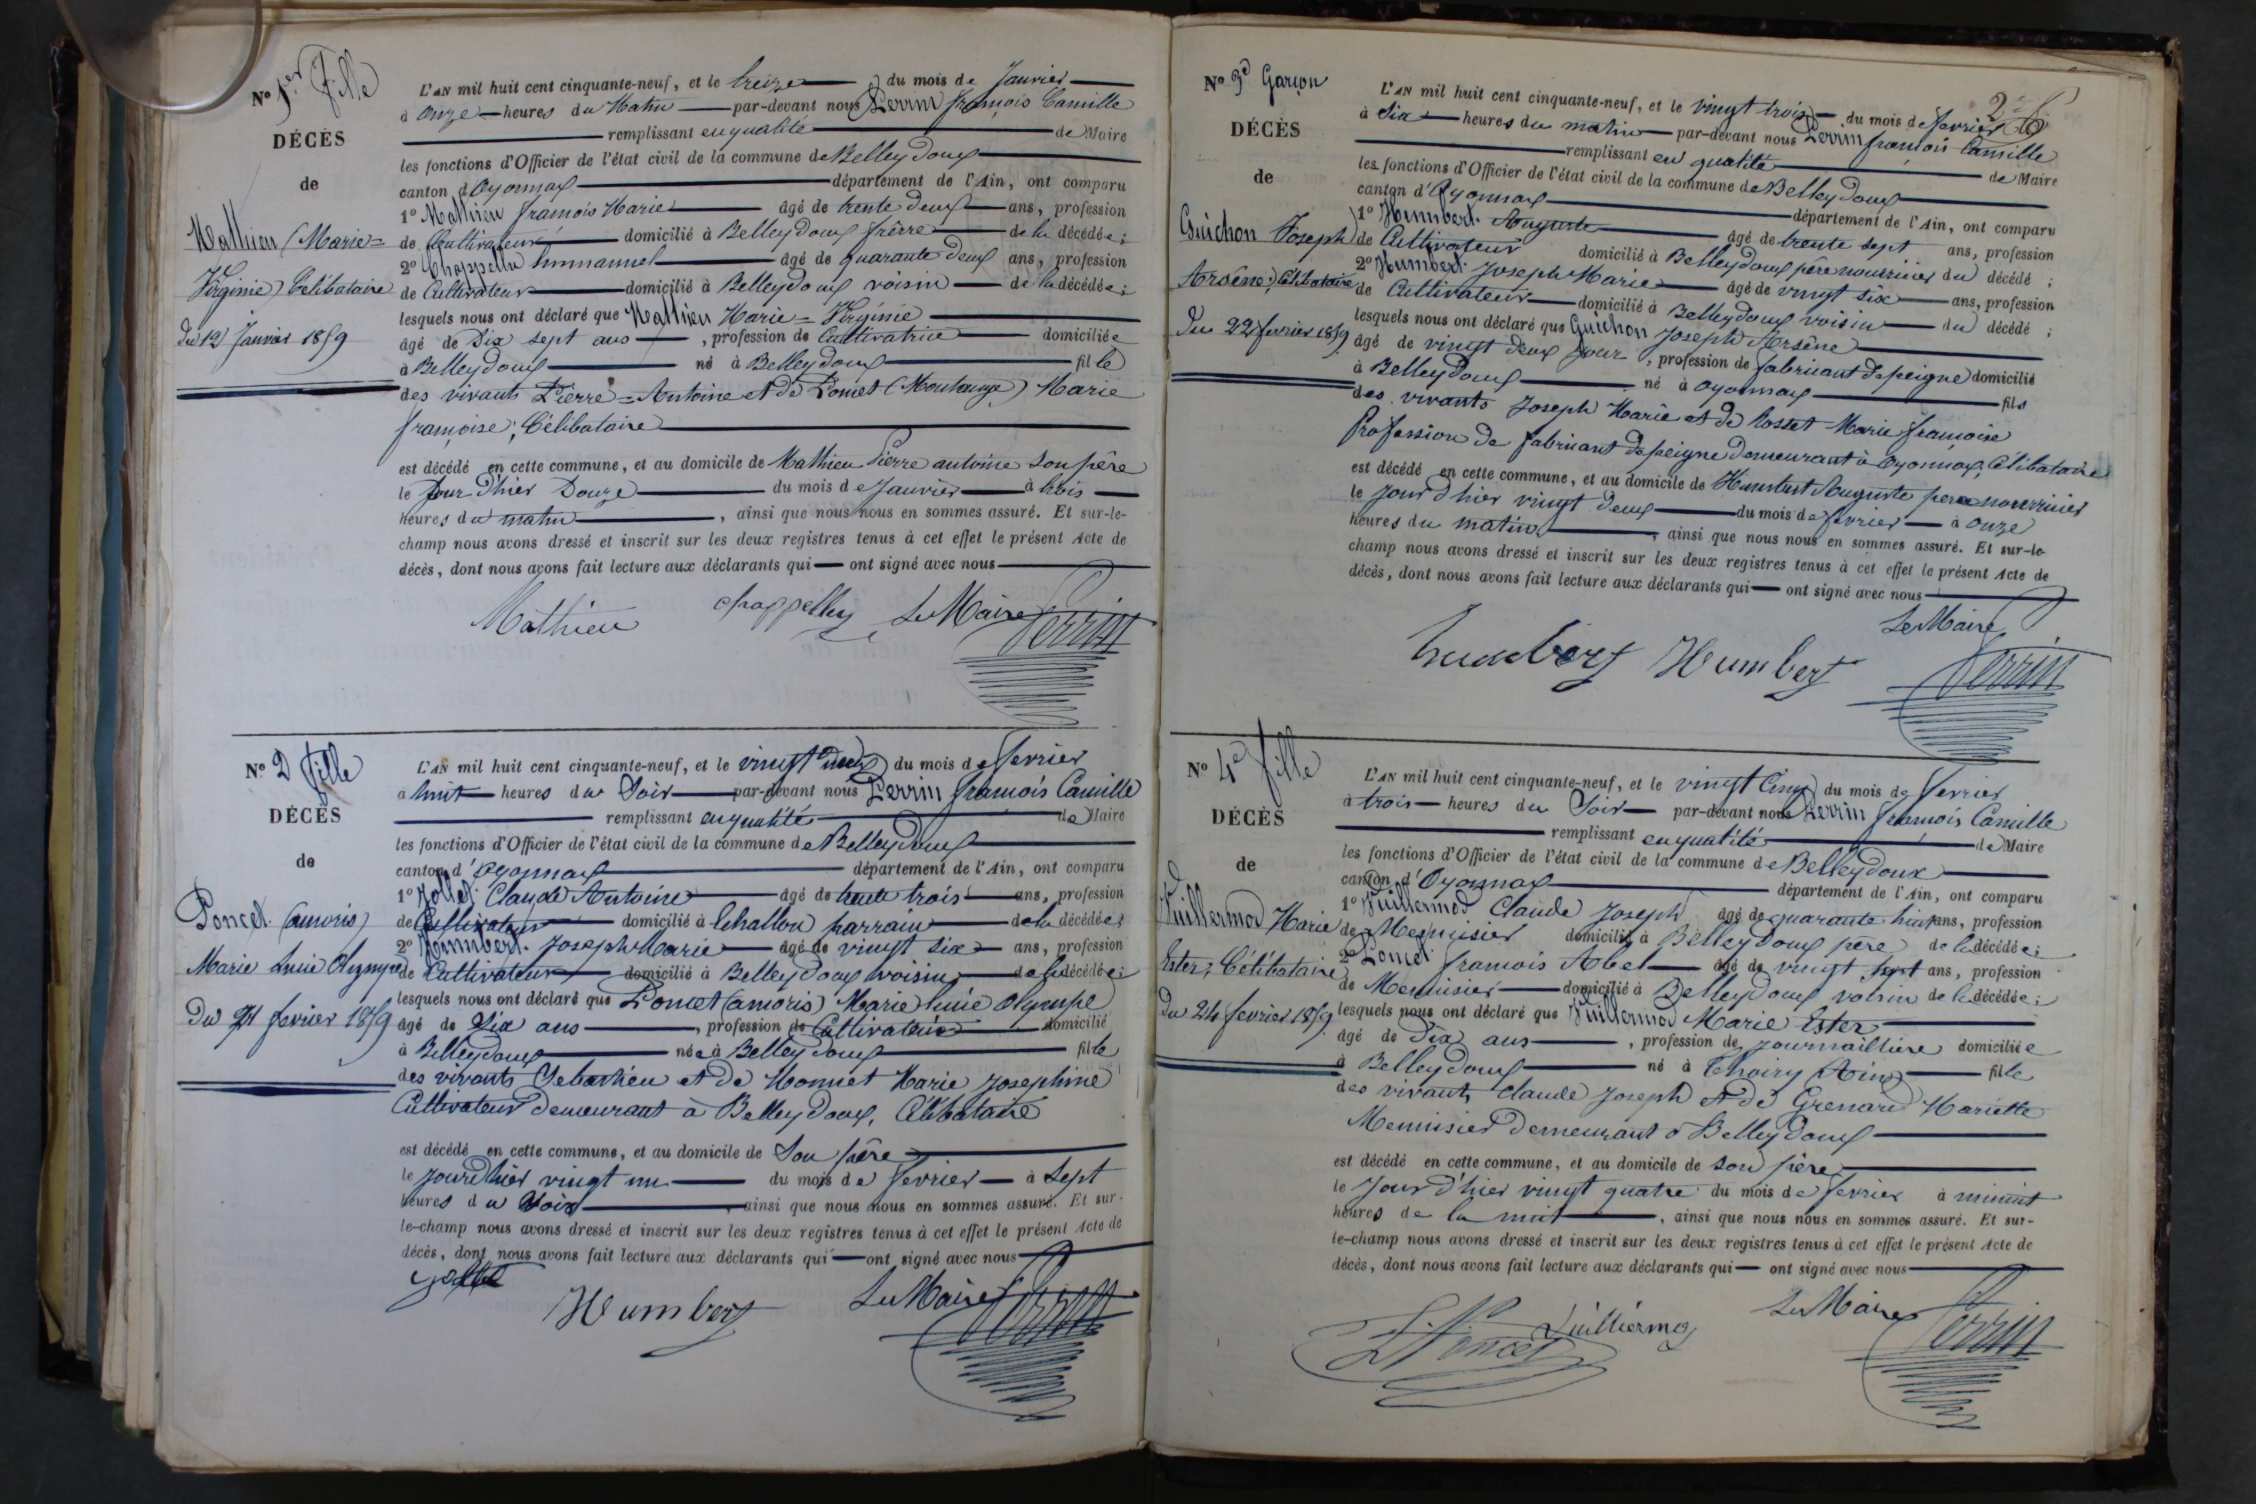 No 1er Fille
DÉCÈS
de
Mathieu (Marie=
Virginie) Célibataire
du 12 Janvier 1859
L'AN mil huit cent cinquante-neuf, et le treize du mois de Janvier
à onze heures du Matin par-devant nous Perrin françois Camille
remplissant en qualité de Maire
les fonctions d'Officier de l'état civil de la commune de Belleydoux
canton d'Oyonnax département de l'Ain, ont comparu
1o Mathieu françois Marie âgé de trente deux ans, profession
de Cultivateur domicilié à Belleydoux frère de la décédée;
2o Chappellu Emmanuel âgé de quarante deux ans, profession
de Cultivateur domicilié à Belleydoux voisin de la décédée;
lesquels nous ont déclaré que Mathieu Marie=Virginie
âgé de Dix sept ans, profession de Cultivatrice domiciliée
à Belleydoux né à Belleydoux fille
des vivants Pierre=Antoine et de Poncet (Montange) Marie
françoise; Célibataire
est décédé en cette commune, et au domicile de Mathieu Pierre antoine son père
le Jour d'hier Douze du mois de Janvier à trois
heures du matin, ainsi que nous nous en sommes assuré. Et sur-le-
champ nous avons dressé et inscrit sur les deux registres tenus à cet effet le présent Acte de
décès, dont nous avons fait lecture aux déclarants qui ont signé avec nous
Mathieu Le Maire Perrin
No 2 fille
DÉCÈS
de
Poncet (amoris)
Marie Lucie Olympe
Du 21 fevrier 1859
L'AN mil huit cent cinquante-neuf, et le vingt deux du mois de fevrier
à huit heures du Soir par-devant nous Perrin françois Camille
remplissant en qualité de Maire
les fonctions d'Officier de l'état civil de la commune de Belleydoux
canton d'Oyonnax département de l'Ain, ont comparu
1o Jollet Claude Antoine âgé de trente trois ans, profession
de Cultivateur domicilié à Echallon parrain de la décédée;
2o Humbert Joseph Marie âgé de vingt six ans, profession
de Cultivateur domicilié à Belleydoux voisin de la décédée;
lesquels nous ont déclaré que Poncet (amoris) Marie lucie olympe
âgé de Six ans, profession de Cultivatrice domicilié
à Belleydoux née à Belleydoux fille
des vivants Sebastien et de Monnet Marie Josephine
Cultivateur demeurant à Belleydoux, Célibataire
est décédé en cette commune, et au domicile de Son père
le jour d'hier vingt un du mois de fevrier à Sept
heures du Soir, ainsi que nous nous en sommes assuré. Et sur-
le-champ nous avons dressé et inscrit sur les deux registres tenus à cet effet le présent Acte de
décès, dont nous avons fait lecture aux déclarants qui ont signé avec nous
Humbert Le Maire Perrin
No 3e Garçon
DÉCÈS
de
Guichon Joseph
Arsène; Célibataire
du 22 fevrier 1859
L'AN mil huit cent cinquante-neuf, et le vingt trois du mois de fevrier
à Six heures du matin par-devant nous Perrin françois Camille
remplissant en qualité de Maire
les fonctions d'Officier de l'état civil de la commune de Belleydoux
canton d'Oyonnax département de l'Ain, ont comparu
1o Humbert Auguste âgé de trente sept ans, profession
de Cultivateur domicilié à Belleydoux père nourricier du décédé;
2o Humbert Joseph Marie âgé de vingt six ans, profession
de Cultivateur domicilié à Belleydoux voisin du décédé;
lesquels nous ont déclaré que Guichon Joseph Arsène
âgé de vingt deux Jour, profession de fabricant de peigne domicilié
à Belleydoux né à Oyonnax fils
des vivants Joseph Marie et de Cosset Marie françoise
Profession de fabricant de peigne Demeurant à Oyonnax, Célibataire
est décédé en cette commune, et au domicile de Humbert Auguste pere nourricier
le jour d'hier vingt deux du mois de fevrier à onze
heures du matin, ainsi que nous nous en sommes assuré. Et sur-le
champ nous avons dressé et inscrit sur les deux registres tenus à cet effet le présent Acte de
décès, dont nous avons fait lecture aux déclarants qui ont signé avec nous
Le Maire
humbert Humbert Perrin
No 4e fille
DÉCÈS
de
Vuillermoz Marie
Ester; Célibataire
Du 24 fevrier 1859
L'AN mil huit cent cinquante-neuf, et le vingt Cinq du mois de fevrier
à trois heures du Soir par-devant nous Perrin françois Camille
remplissant en qualité de Maire
les fonctions d'Officier de l'état civil de la commune de Belleydoux
canton d'Oyonnax département de l'Ain, ont comparu
1o Vuillermoz Claude Joseph âgé de quarante huit ans, profession
de Menuisier domicilié à Belleydoux père de la décédée;
2o Poncet françois Abel âgé de vingt sept ans, profession
de Menuisier domicilié à Belleydoux voisin de la décédée;
lesquels nous ont déclaré que Vuillermoz Marie Ester
âgé de Dix ans, profession de journaillière domiciliée
à Belleydoux né à Thoiry (Ain) fille
des vivants Claude Joseph et de Grenard Mariette
Menuisier Demeurant à Belleydoux
est décédé en cette commune, et au domicile de son père
le Jour d'hier vingt quatre du mois de fevrier à minuit
heures de la nuit, ainsi que nous nous en sommes assuré. Et sur-
le-champ nous avons dressé et inscrit sur les deux registres tenus à cet effet le présent Acte de
décès, dont nous avons fait lecture aux déclarants qui ont signé avec nous
Poncet Vuilliermoz Le Maire Perrin